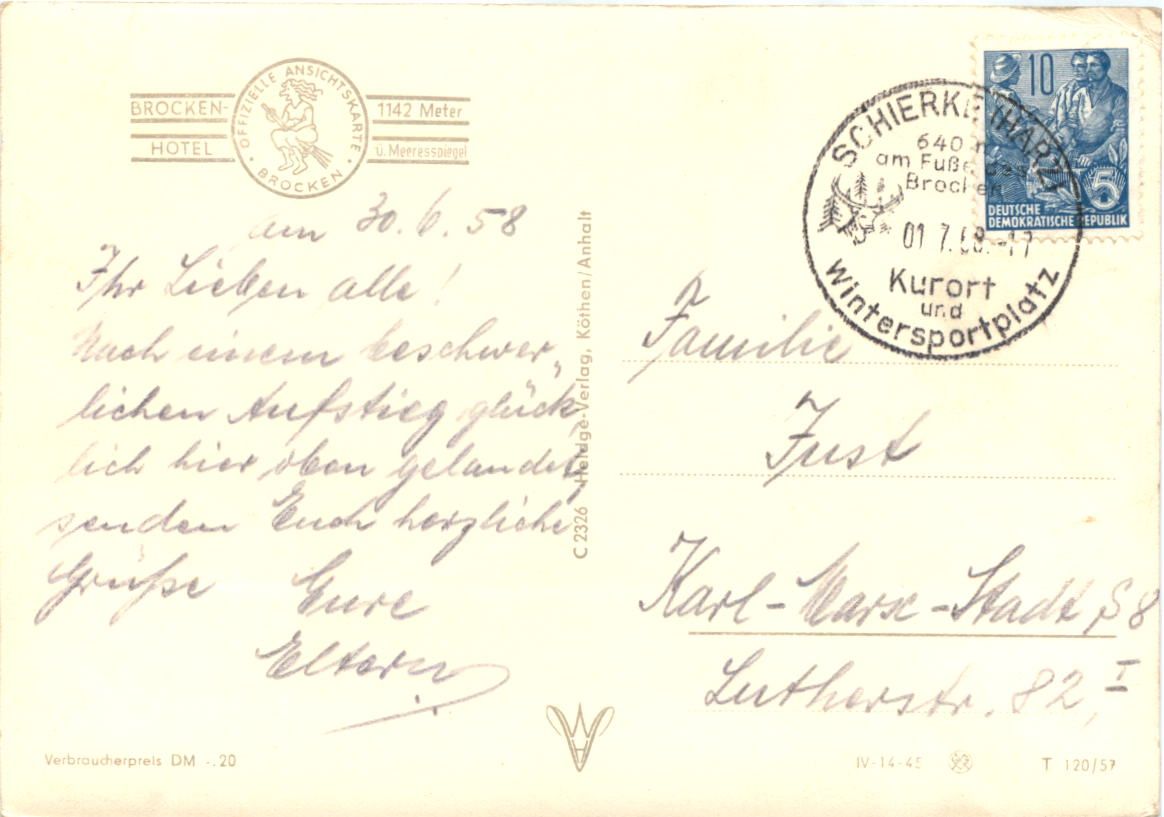 BROCKEN-
HOTEL
OFFIZIELLE ANSICHTSKARTE
BROCKEN
1142 Meter
ü. Meeresspiegel
am 30.6.58
Ihr Lieben alle!
Nach einem beschwer„
lichen Aufstieg glück„
lich hier oben gelandet,
senden Euch herzliche
Grüße Eure
Eltern
Verbraucherpreis DM -.20
C 2326 Heldge-Verlag, Köthen/Anhalt
SCHIERKE (HARZ)
640 m
am Fuße des
Brocken
01.7.58.-17
Kurort
und
Wintersportplatz
10
5
DEUTSCHE
DEMOKRATISCHE REPUBLIK
Familie
Just
Karl-Marx-Stadt S8
Lutherstr. 82, I
IV-14-45
T 120/57